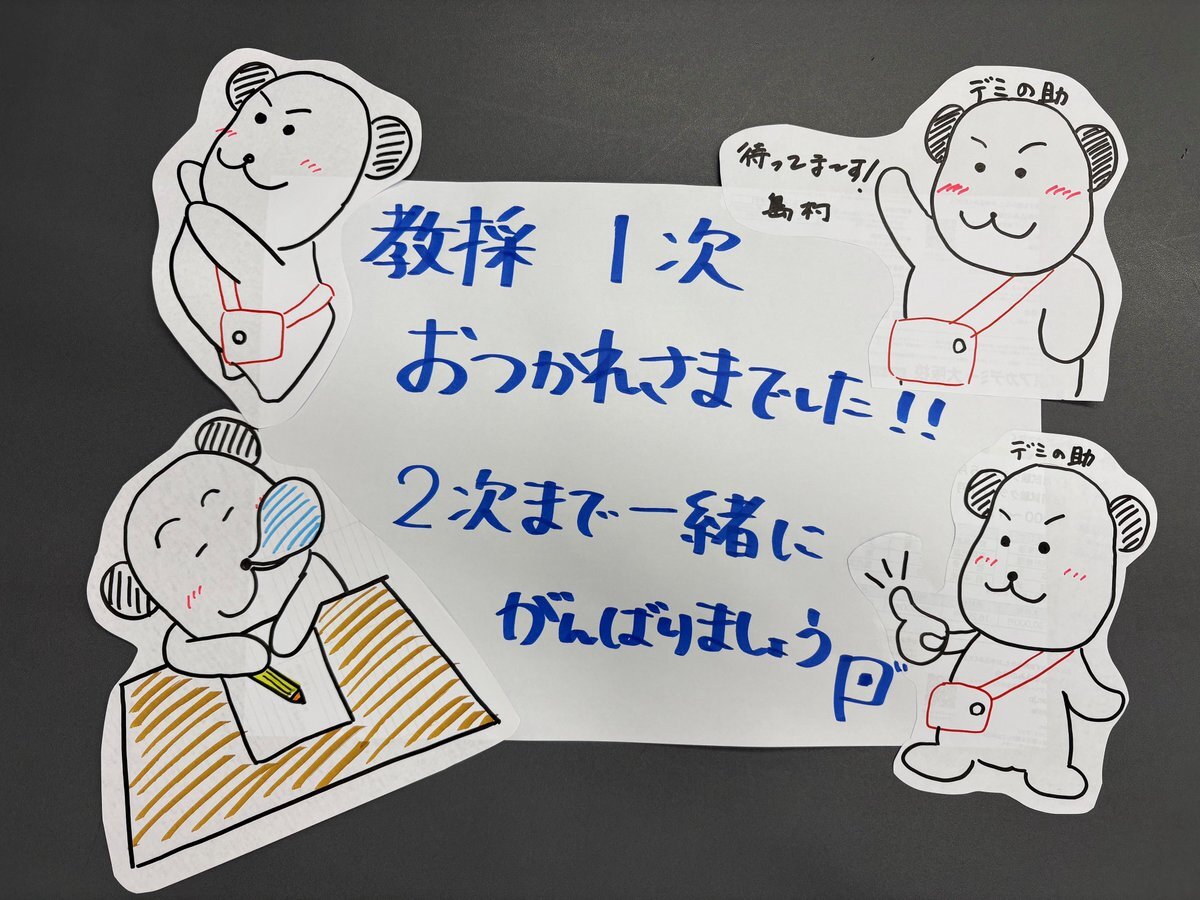 教採 1次
おつかれさまでした!!
2次まで一緒に
がんばりましょう
デミの助
待ってま〜す!
島村
デミの助